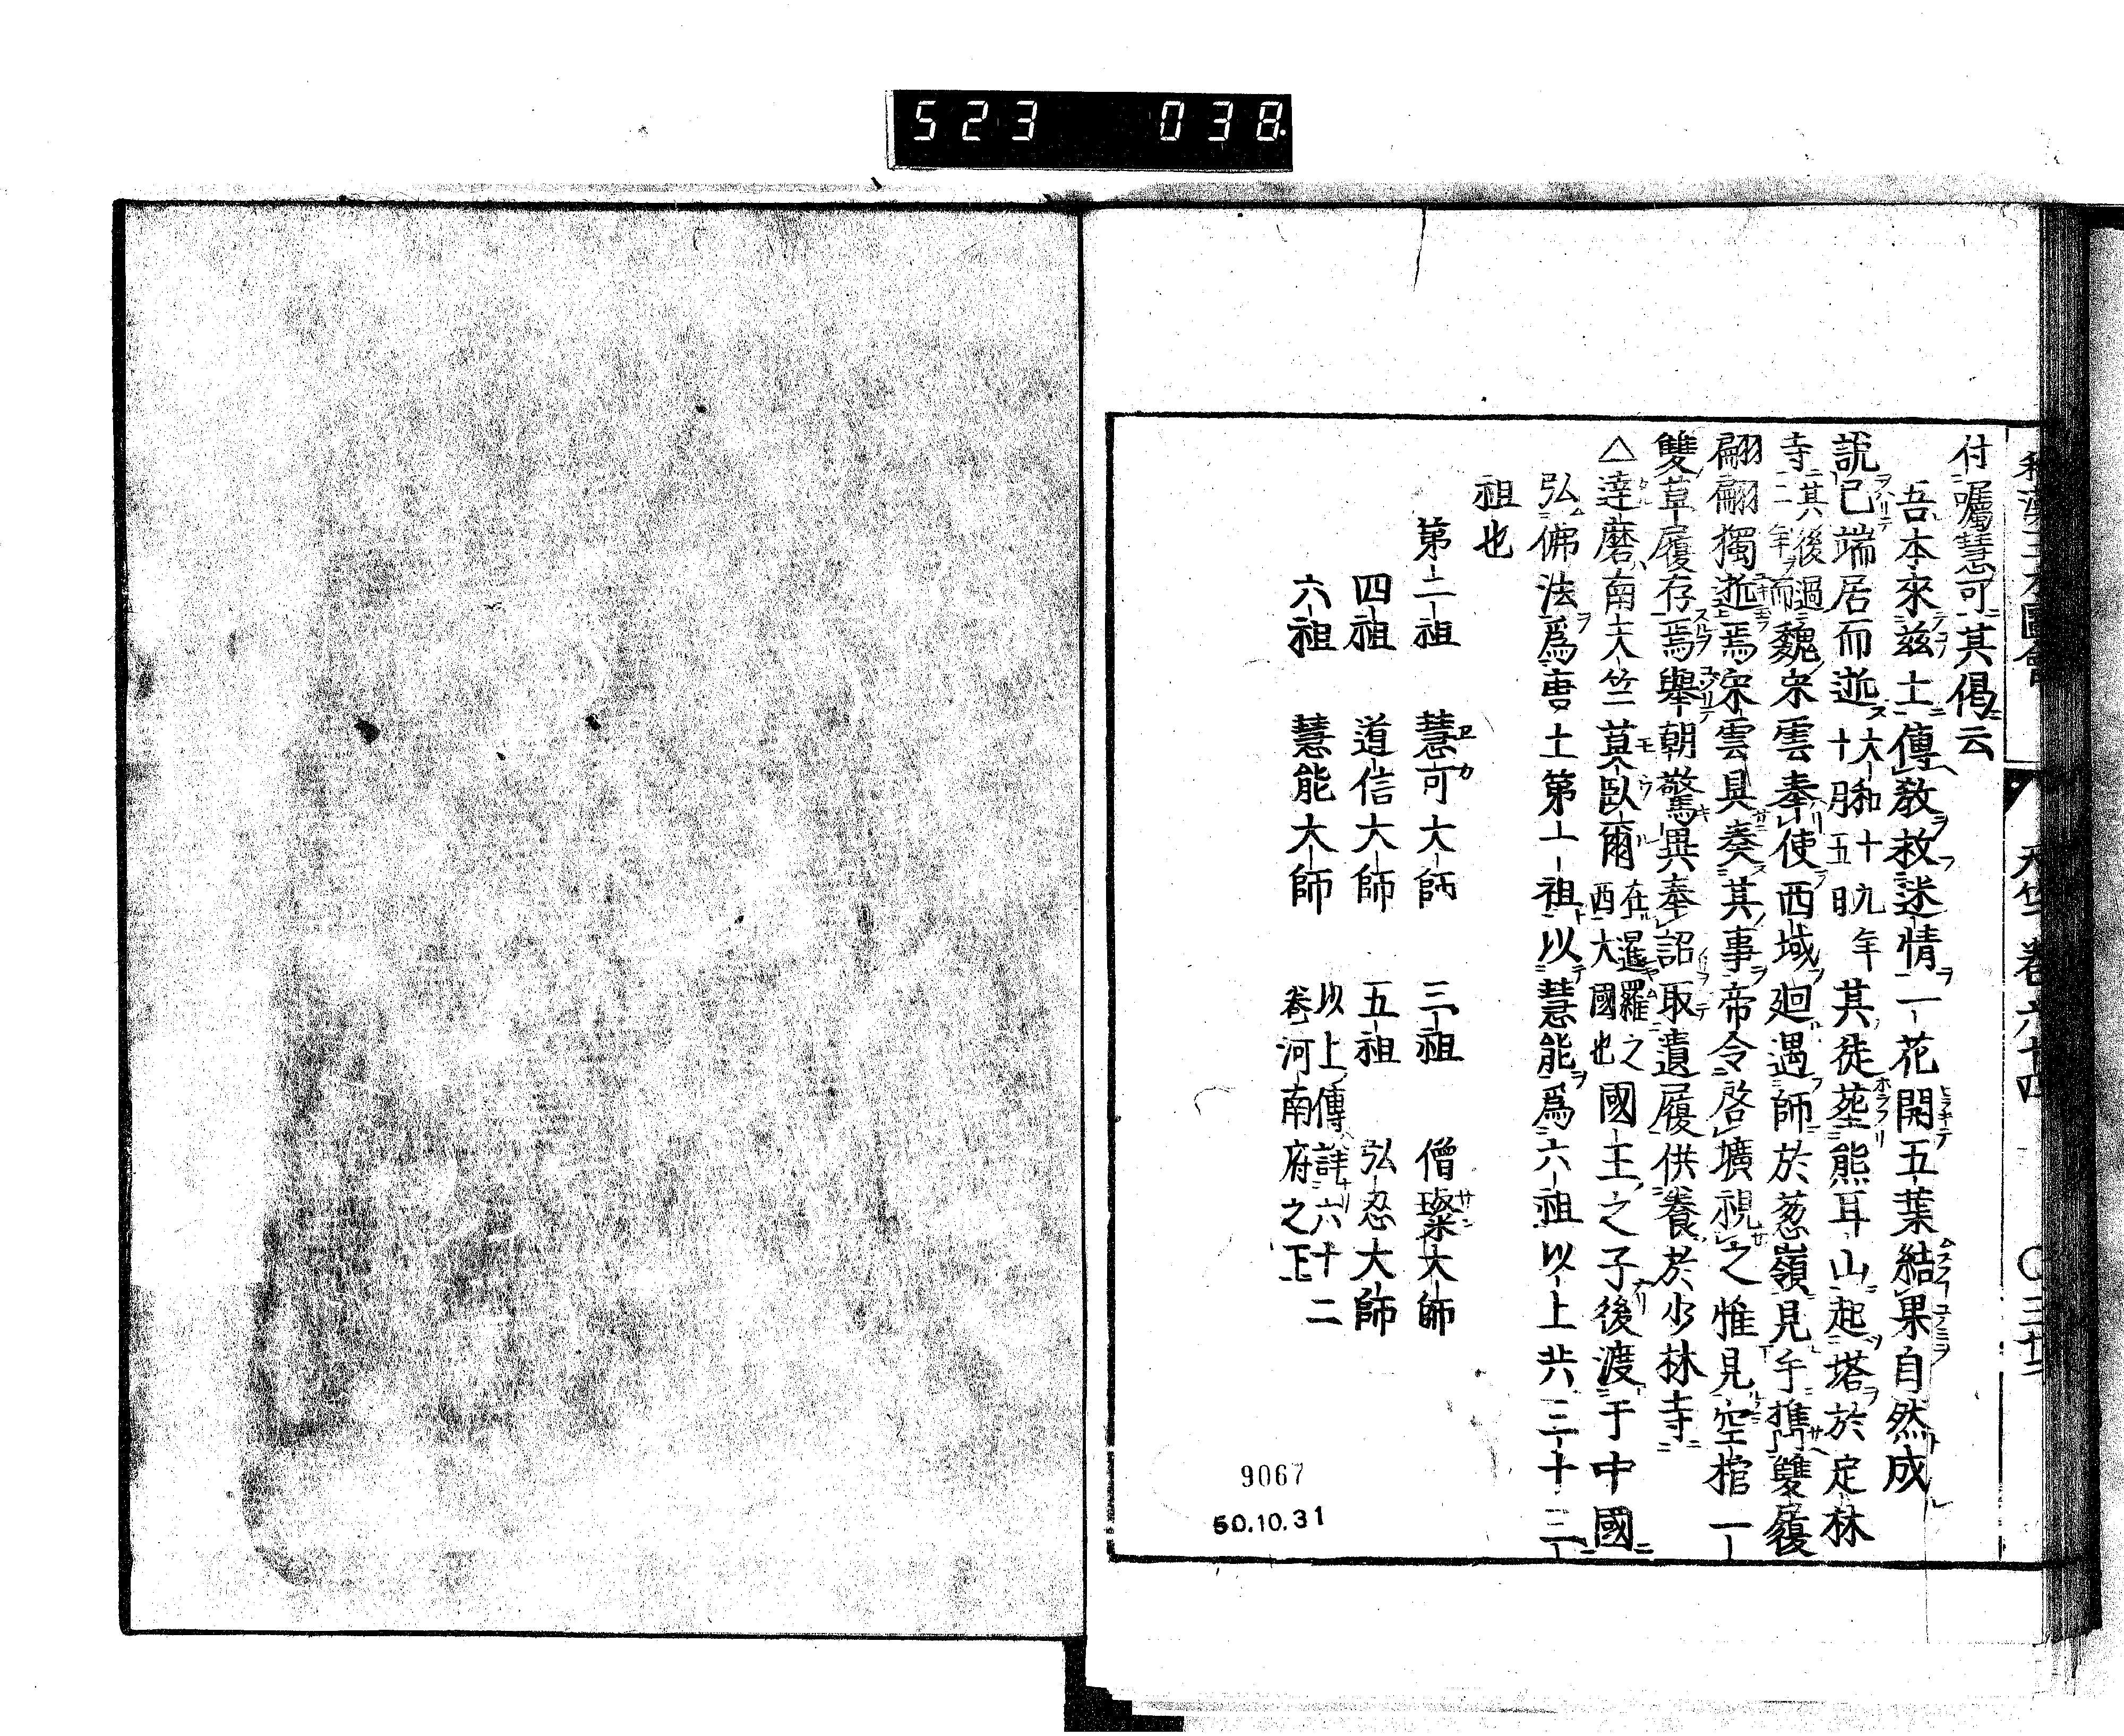 523 038
付囑慧可其偈云
吾本來茲土傳敎救迷情一花開五葉結果自然成
說已端居而逝大和十九年十月五日其徒葬熊耳山起塔於定林
寺其後過二年而魏宋雲奉使西域廻遇師於葱嶺見手携雙履
翩翩獨逝焉宋雲具奏其事帝令啓壙視之惟見空棺一
雙草履存焉舉朝驚異奉詔取遺履供養於少林寺
△達磨南天竺莫臥爾在暹羅之西大國也國王之子後渡于中國
弘佛法爲唐土第一祖以慧能爲六祖以上共三十三
祖也
第二祖 慧可大師 三祖 僧璨大師
四祖 道信大師 五祖 弘忍大師
六祖 慧能大師 以上傳詳六十二卷河南府之下
天竺 卷六十四 〇三十二
9067
50.10.31